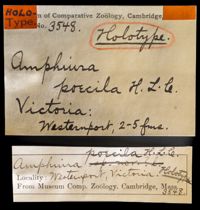 HOLO-
TYPE.
m of Comparative Zoölogy, Cambridge,
No. 3548.
Holotype.
Amphiura
poecila H. L. C.
Victoria:
Westernport, 2-5 fms.
poecila H. L. C.
Amphiura
Holotype
Locality: Westernport, Victoria
From Museum Comp. Zoölogy, Cambridge, Mass.
3548